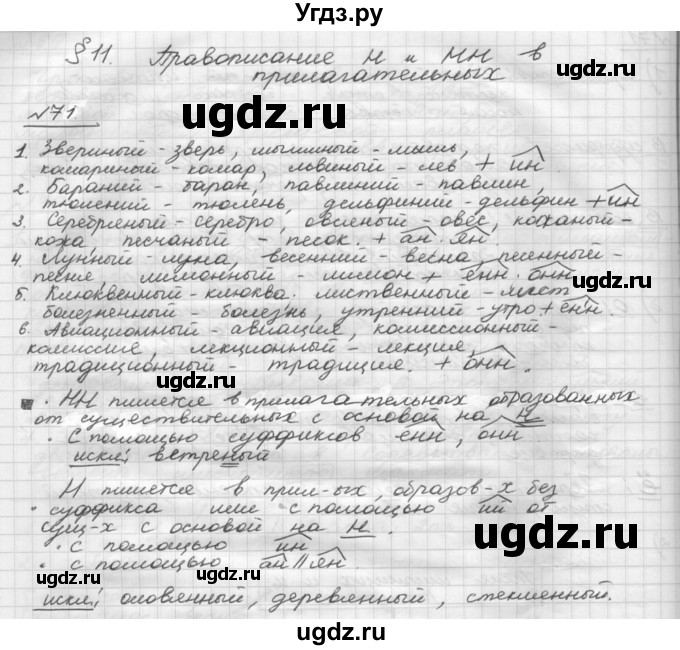 Угdз.ру
§ 11. Правописание Н и НН в
прилагательных
ugdz.ru ugdz.ru
№71.
1. Звериный - зверь, мышиный - мышь,
комариный - комар, львиный - лев + ин
2. Бараний - баран, павлиний - павлин,
тюлений - тюлень, дельфиний - дельфин + ин
ugdz.ru
3. Серебряный - серебро, овсяный - овёс, кожаный -
кожа, песчаный - песок. + ан. ян.
4. Лунный - луна, весенний - весна, песенный -
песня, лимонный - лимон + енн. онн
5. Клюквенный - клюква. лиственный - лист
болезненный - болезнь, утренний - утро + енн.
ugdz.ru ugdz.ru
6. Авиационный - авиация, комиссионный -
комиссия, лекционный - лекция,
традиционный - традиция. + онн.
ugdz.ru
· НН пишется в прилагательных образованных
от существительных с основой на н
· С помощью суффиксов енн, онн
искл: ветреный
ugdz.ru ugdz.ru
Н пишется в прил-ых, образов-х без
· суффикса или с помощью ин от
сущ-х с основой на Н.
· с помощью ин
· с помощью ан || ян.
ugdz.ru ugdz.ru
искл: оловянный, деревянный, стеклянный.
ugdz.ru